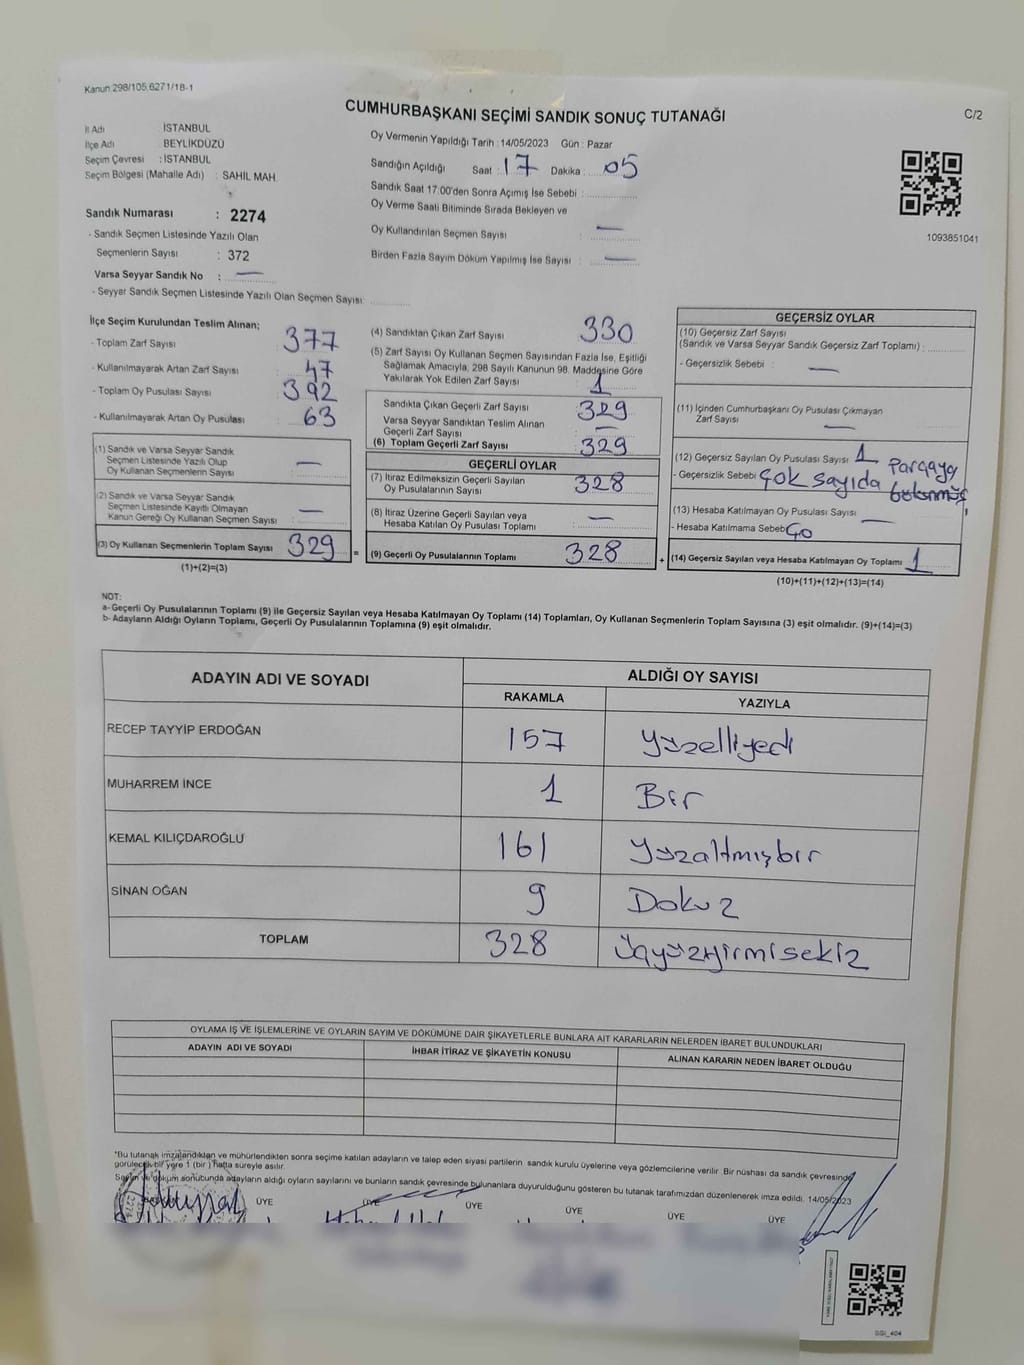 Kanun 298/105,6271/18-1
CUMHURBAŞKANI SEÇİMİ SANDIK SONUÇ TUTANAĞI
C/2
İl Adı : İSTANBUL
İlçe Adı : BEYLİKDÜZÜ
Seçim Çevresi : İSTANBUL
Seçim Bölgesi (Mahalle Adı) : SAHİL MAH.
Sandık Numarası : 2274
- Sandık Seçmen Listesinde Yazılı Olan
Seçmenlerin Sayısı : 372
Varsa Seyyar Sandık No : —
- Seyyar Sandık Seçmen Listesinde Yazılı Olan Seçmen Sayısı:
Oy Vermenin Yapıldığı Tarih : 14/05/2023 Gün : Pazar
Sandığın Açıldığı Saat : 17 Dakika : 05
Sandık Saat 17.00'den Sonra Açımış İse Sebebi :
Oy Verme Saati Bitiminde Sırada Bekleyen ve
Oy Kullandırılan Seçmen Sayısı : —
Birden Fazla Sayım Döküm Yapılmış İse Sayısı : —
1093851041
İlçe Seçim Kurulundan Teslim Alınan;
- Toplam Zarf Sayısı 377
- Kullanılmayarak Artan Zarf Sayısı 47
- Toplam Oy Pusulası Sayısı 392
- Kullanılmayarak Artan Oy Pusulası 63
(1) Sandık ve Varsa Seyyar Sandık
Seçmen Listesinde Yazılı Olup
Oy Kullanan Seçmenlerin Sayısı : —
(2) Sandık ve Varsa Seyyar Sandık
Seçmen Listesinde Kayıtlı Olmayan
Kanun Gereği Oy Kullanan Seçmen Sayısı : —
(3) Oy Kullanan Seçmenlerin Toplam Sayısı 329
(1)+(2)=(3)
(4) Sandıktan Çıkan Zarf Sayısı 330
(5) Zarf Sayısı Oy Kullanan Seçmen Sayısından Fazla İse, Eşitliği
Sağlamak Amacıyla, 298 Sayılı Kanunun 98. Maddesine Göre
Yakılarak Yok Edilen Zarf Sayısı 1
Sandıkta Çıkan Geçerli Zarf Sayısı 329
Varsa Seyyar Sandıktan Teslim Alınan
Geçerli Zarf Sayısı —
(6) Toplam Geçerli Zarf Sayısı 329
GEÇERLİ OYLAR
(7) İtiraz Edilmeksizin Geçerli Sayılan
Oy Pusulalarının Sayısı 328
(8) İtiraz Üzerine Geçerli Sayılan veya
Hesaba Katılan Oy Pusulası Toplamı —
= (9) Geçerli Oy Pusulalarının Toplamı 328
GEÇERSİZ OYLAR
(10) Geçersiz Zarf Sayısı
(Sandık ve Varsa Seyyar Sandık Geçersiz Zarf Toplamı) :
- Geçersizlik Sebebi : —
(11) İçinden Cumhurbaşkanı Oy Pusulası Çıkmayan
Zarf Sayısı —
(12) Geçersiz Sayılan Oy Pusulası Sayısı 1 Parçaya
- Geçersizlik Sebebi Çok sayıda bölünmüş
(13) Hesaba Katılmayan Oy Pusulası Sayısı —
- Hesaba Katılmama Sebebi
+ (14) Geçersiz Sayılan veya Hesaba Katılmayan Oy Toplamı 1
(10)+(11)+(12)+(13)=(14)
NOT:
a- Geçerli Oy Pusulalarının Toplamı (9) ile Geçersiz Sayılan veya Hesaba Katılmayan Oy Toplamı (14) Toplamları, Oy Kullanan Seçmenlerin Toplam Sayısına (3) eşit olmalıdır. (9)+(14)=(3)
b- Adayların Aldığı Oyların Toplamı, Geçerli Oy Pusulalarının Toplamına (9) eşit olmalıdır.
ADAYIN ADI VE SOYADI
ALDIĞI OY SAYISI
RAKAMLA YAZIYLA
RECEP TAYYİP ERDOĞAN 157 Yüzelliyedi
MUHARREM İNCE 1 Bir
KEMAL KILIÇDAROĞLU 161 Yüzaltmışbir
SİNAN OĞAN 9 Dokuz
TOPLAM 328 Üçyüzyirmisekiz
OYLAMA İŞ VE İŞLEMLERİNE VE OYLARIN SAYIM VE DÖKÜMÜNE DAİR ŞİKAYETLERLE BUNLARA AİT KARARLARIN NELERDEN İBARET BULUNDUKLARI
ADAYIN ADI VE SOYADI İHBAR İTİRAZ VE ŞİKAYETİN KONUSU ALINAN KARARIN NEDEN İBARET OLDUĞU
*Bu tutanak imzalandıktan ve mühürlendikten sonra seçime katılan adayların ve talep eden siyasi partilerin sandık kurulu üyelerine veya gözlemcilerine verilir. Bir nüshası da sandık çevresinde
görülecek bir yere 1 (bir) hafta süreyle asılır.
Sayım ve döküm sonubunda adayların aldığı oyların sayılarını ve bunların sandık çevresinde bulunanlara duyurulduğunu gösteren bu tutanak tarafımızdan düzenlenerek imza edildi. 14/05/2023
ÜYE ÜYE ÜYE ÜYE ÜYE